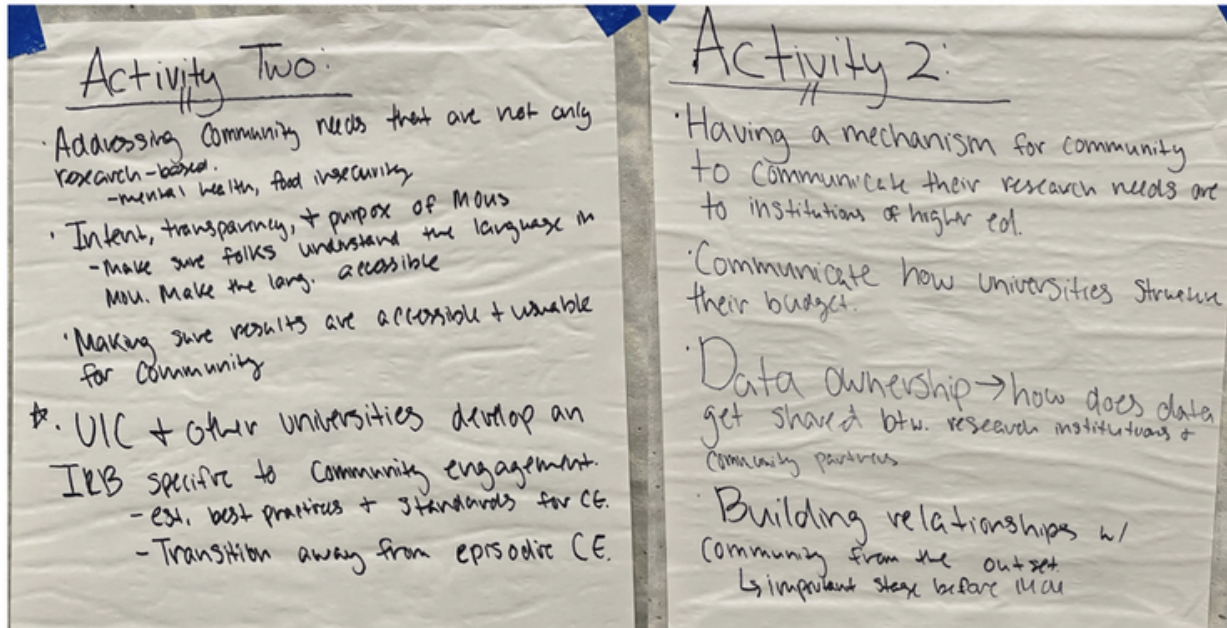 Activity Two:
· Addressing Community needs that are not only
research-based.
- mental health, food insecurity
· Intent, transparency, + purpose of MOUs
- Make sure folks understand the language in
MOU. Make the lang. accessible
· Making sure results are accessible + usuable
for Community
☆ · UIC + other universities develop an
IRB specific to Community engagement.
- est. best practices + standards for CE.
- Transition away from episodic CE.
Activity 2:
· Having a mechanism for community
to communicate their research needs are
to institutions of higher ed.
· Communicate how universities structure
their budget.
· Data ownership → how does data
get shared btw. research institutions +
community partners
· Building relationships w/
community from the outset
↳ important stage before MOU